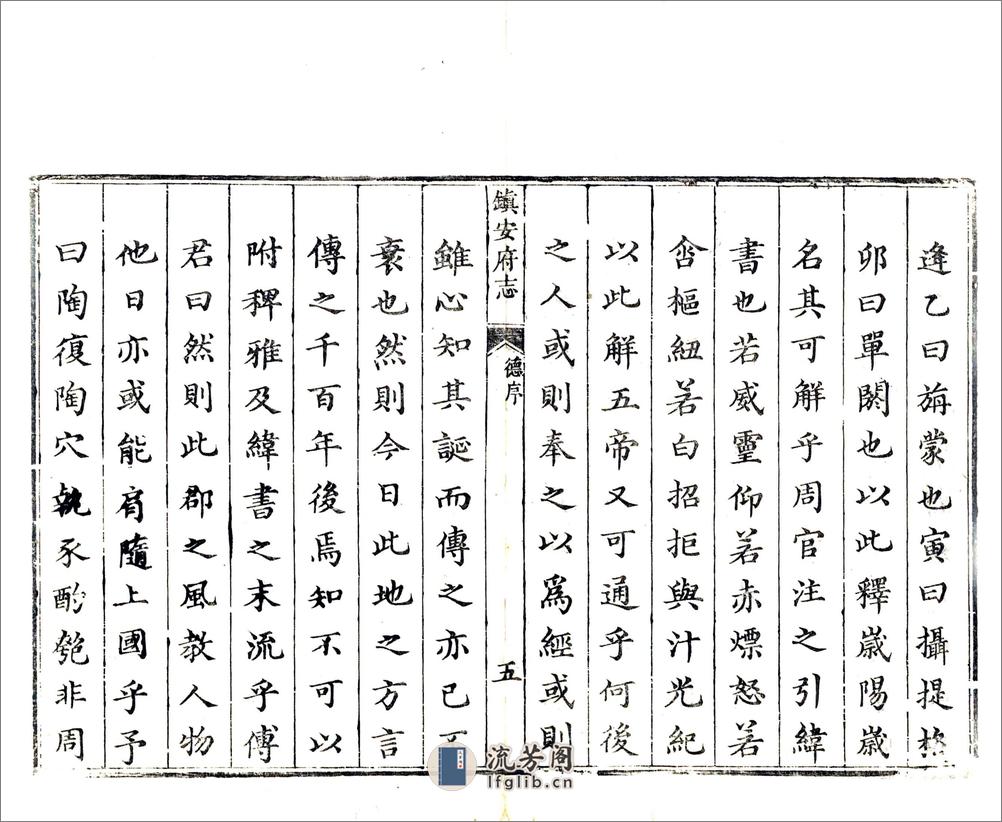 逢乙曰旃蒙也寅曰攝提格
卯曰單閼也以此釋歲陽歲
名其可解乎周官注之引緯
書也若威靈仰若赤熛怒若
含樞紐若白招拒與汁光紀
以此解五帝又可通乎何後
之人或則奉之以為經或則
鎮安府志
德序
五
雖心知其誕而傳之亦已不
衰也然則今日此地之方言
傳之千百年後焉知不可以
附稗雅及緯書之末流乎傅
君曰然則此郡之風教人物
他日亦或能肩隨上國乎予
曰陶復陶穴執豕酌匏非周
流芳阁
lfglib.cn